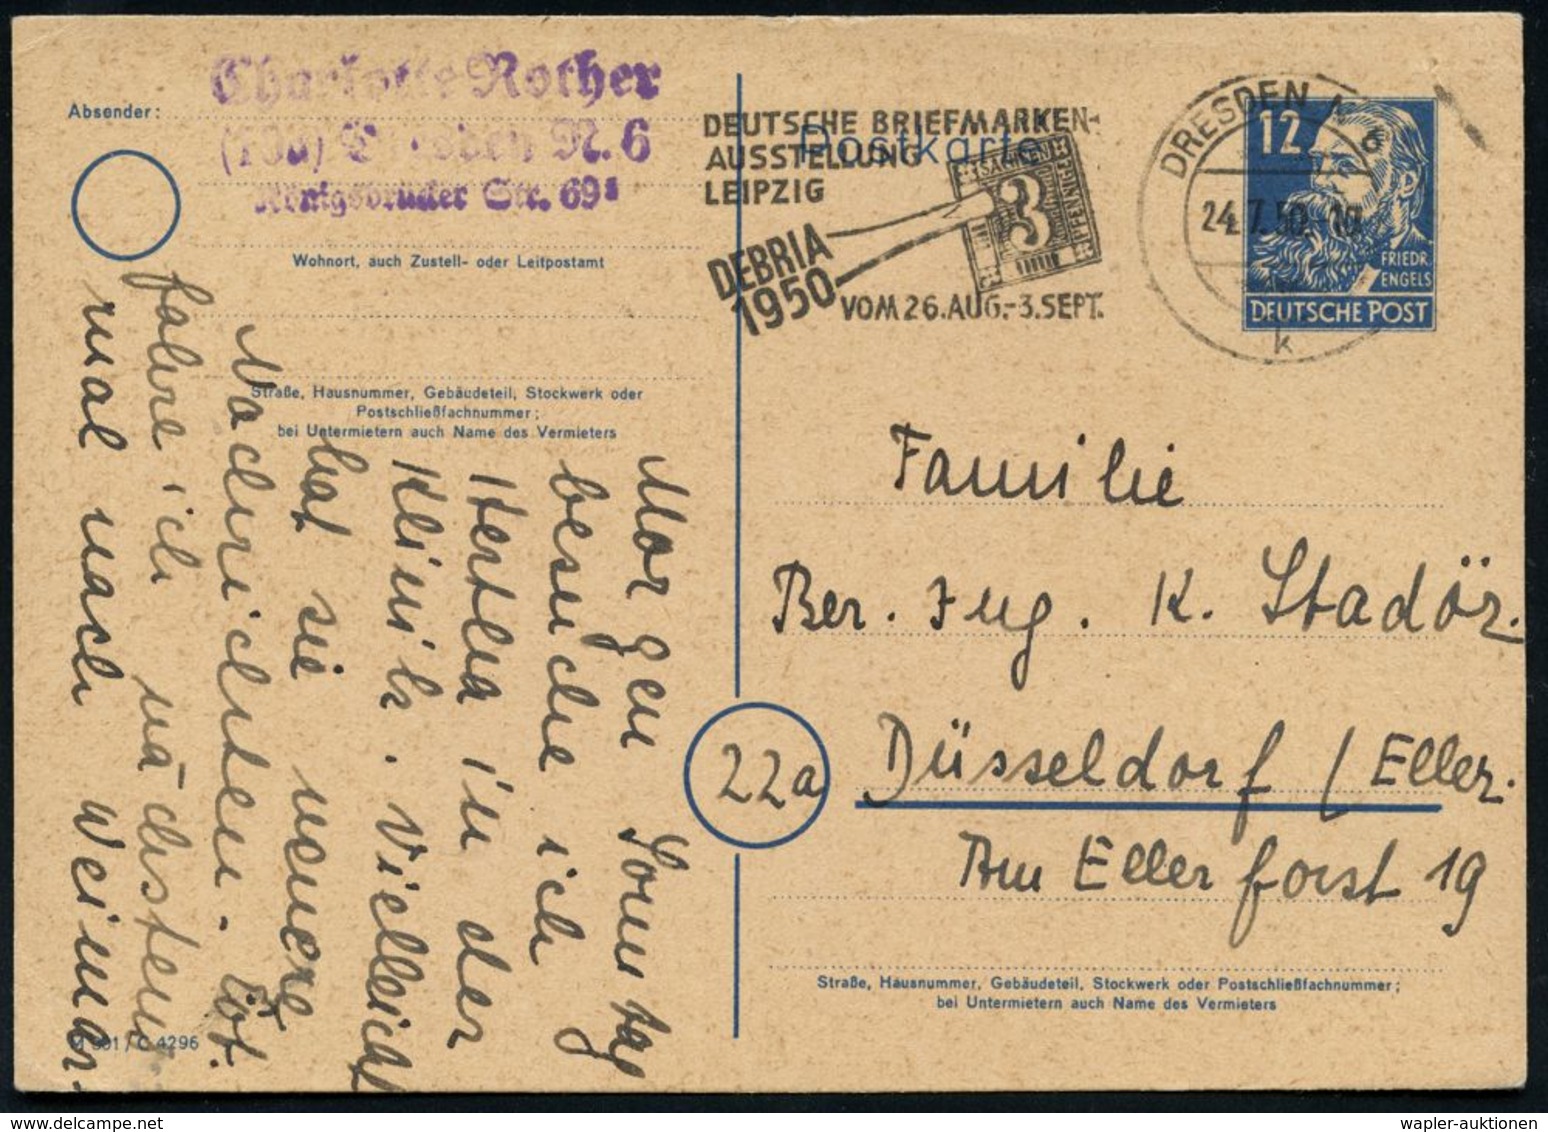 Absender:
Charlotte Rother
(10a) Dresden N. 6
Königsbrücker Str. 69a
Wohnort, auch Zustell- oder Leitpostamt
Straße, Hausnummer, Gebäudeteil, Stockwerk oder
Postschließfachnummer;
bei Untermietern auch Name des Vermieters
Morgen Sonntag
besuche ich
Hertha in der
Klinik. Vielleicht
hat sie neuere
Nachrichten.
fahre ich nächstens
mal nach Weimar
M 301 / C 4296
Postkarte
DEUTSCHE BRIEFMARKEN-
AUSSTELLUNG
LEIPZIG
DEBRIA
1950
SACHSEN
3
PFENNIGE
VOM 26. AUG.-3. SEPT.
DRESDEN N 6
24.7.50.-10
k
12
FRIEDR.
ENGELS
DEUTSCHE POST
Familie
Ber. Ing. K. Stadör.
22a
Düsseldorf / Eller.
Am Eller forst 19
Straße, Hausnummer, Gebäudeteil, Stockwerk oder Postschließfachnummer;
bei Untermietern auch Name des Vermieters
wapler-auktionen